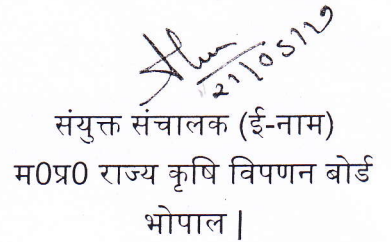 21/05/19
संयुक्त संचालक (ई-नाम)
म0प्र0 राज्य कृषि विपणन बोर्ड
भोपाल |